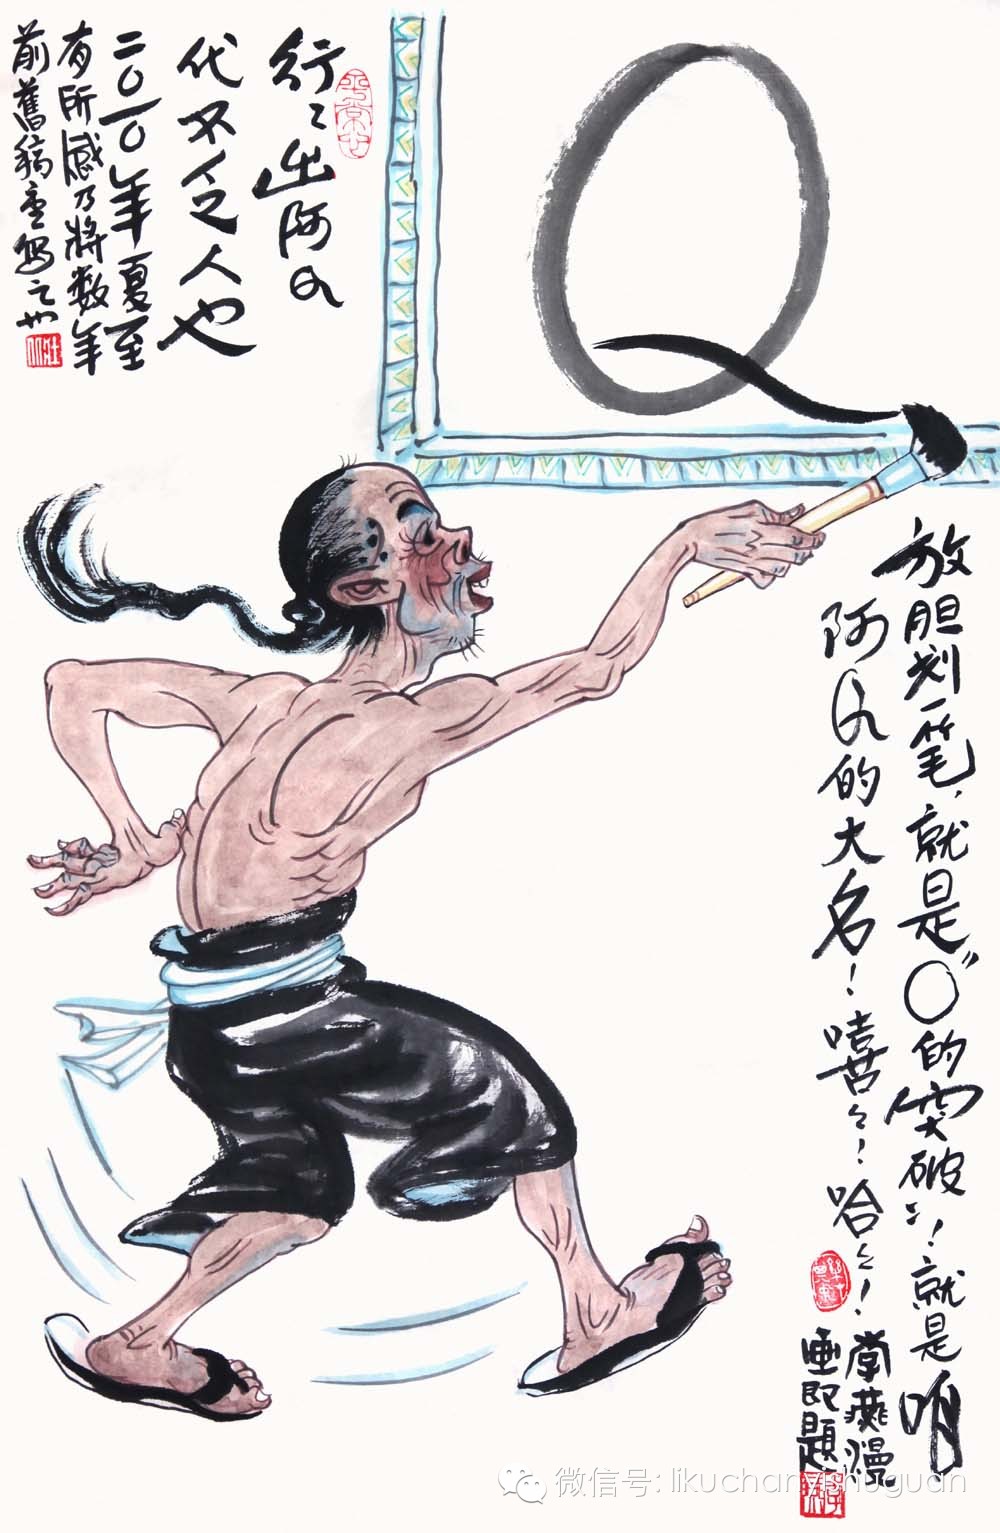 Q
行々出阿Q
代不乏人也
二〇一〇年夏至
有所感乃将数年
前舊稿重写之
放胆划一笔，就是“〇”的突破！就是咱
阿Q的大名！嘻々！哈々！
李燕漫
画即題
微信号: likuchanyishuguan